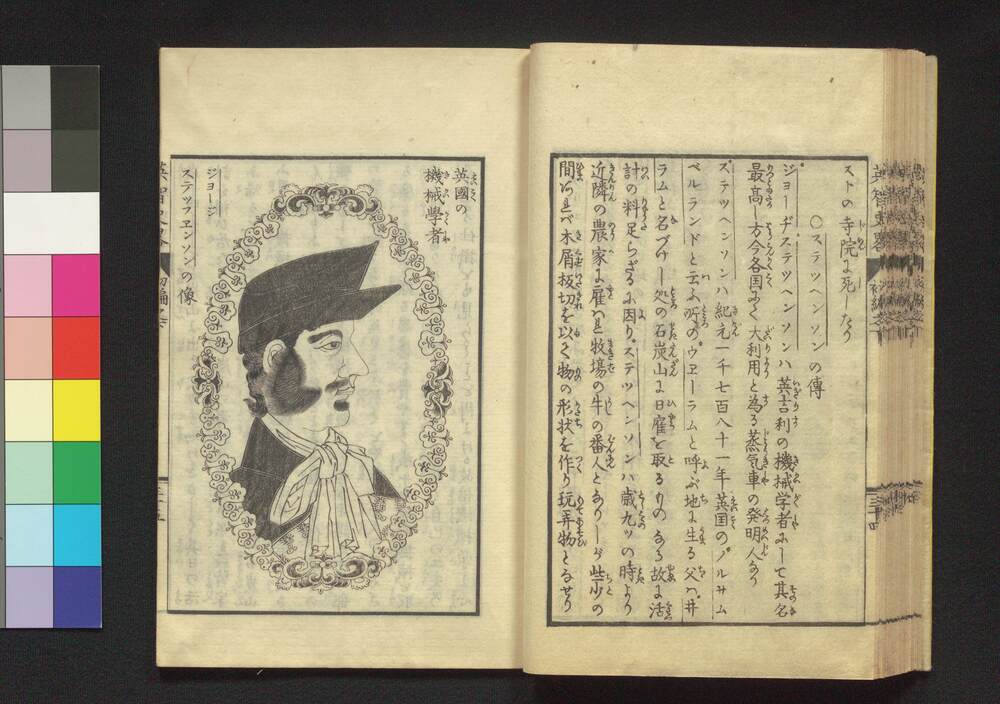 ストの寺院に死したり
○ステツヘンソンの傳
ジョーヂステツヘンソンハ英吉利の機械学者にして其名
最高し方今各国にて大利用と為る蒸気車の発明人なり
ステツヘンソンハ紀元一千七百八十一年英国のノルサム
ベルランドと云ふ所のウヱーラムと呼ぶ地に生る父ハ井
ラムと名づけし処の石炭山に日雇を取るものなる故に活
計の料足らざるに因りステツヘンソンハ歳九ッの時より
近隣の農家に雇はれ牧場の牛の番人となりしが些少の
間あれバ木屑板切を以て物の形状を作り玩弄物となせり
英國の
機械學者
ジョージ
ステッフヱンソンの像
三十四